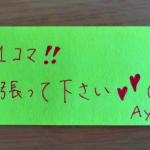 1コマ!!
張って下さい♥♥(
Ay